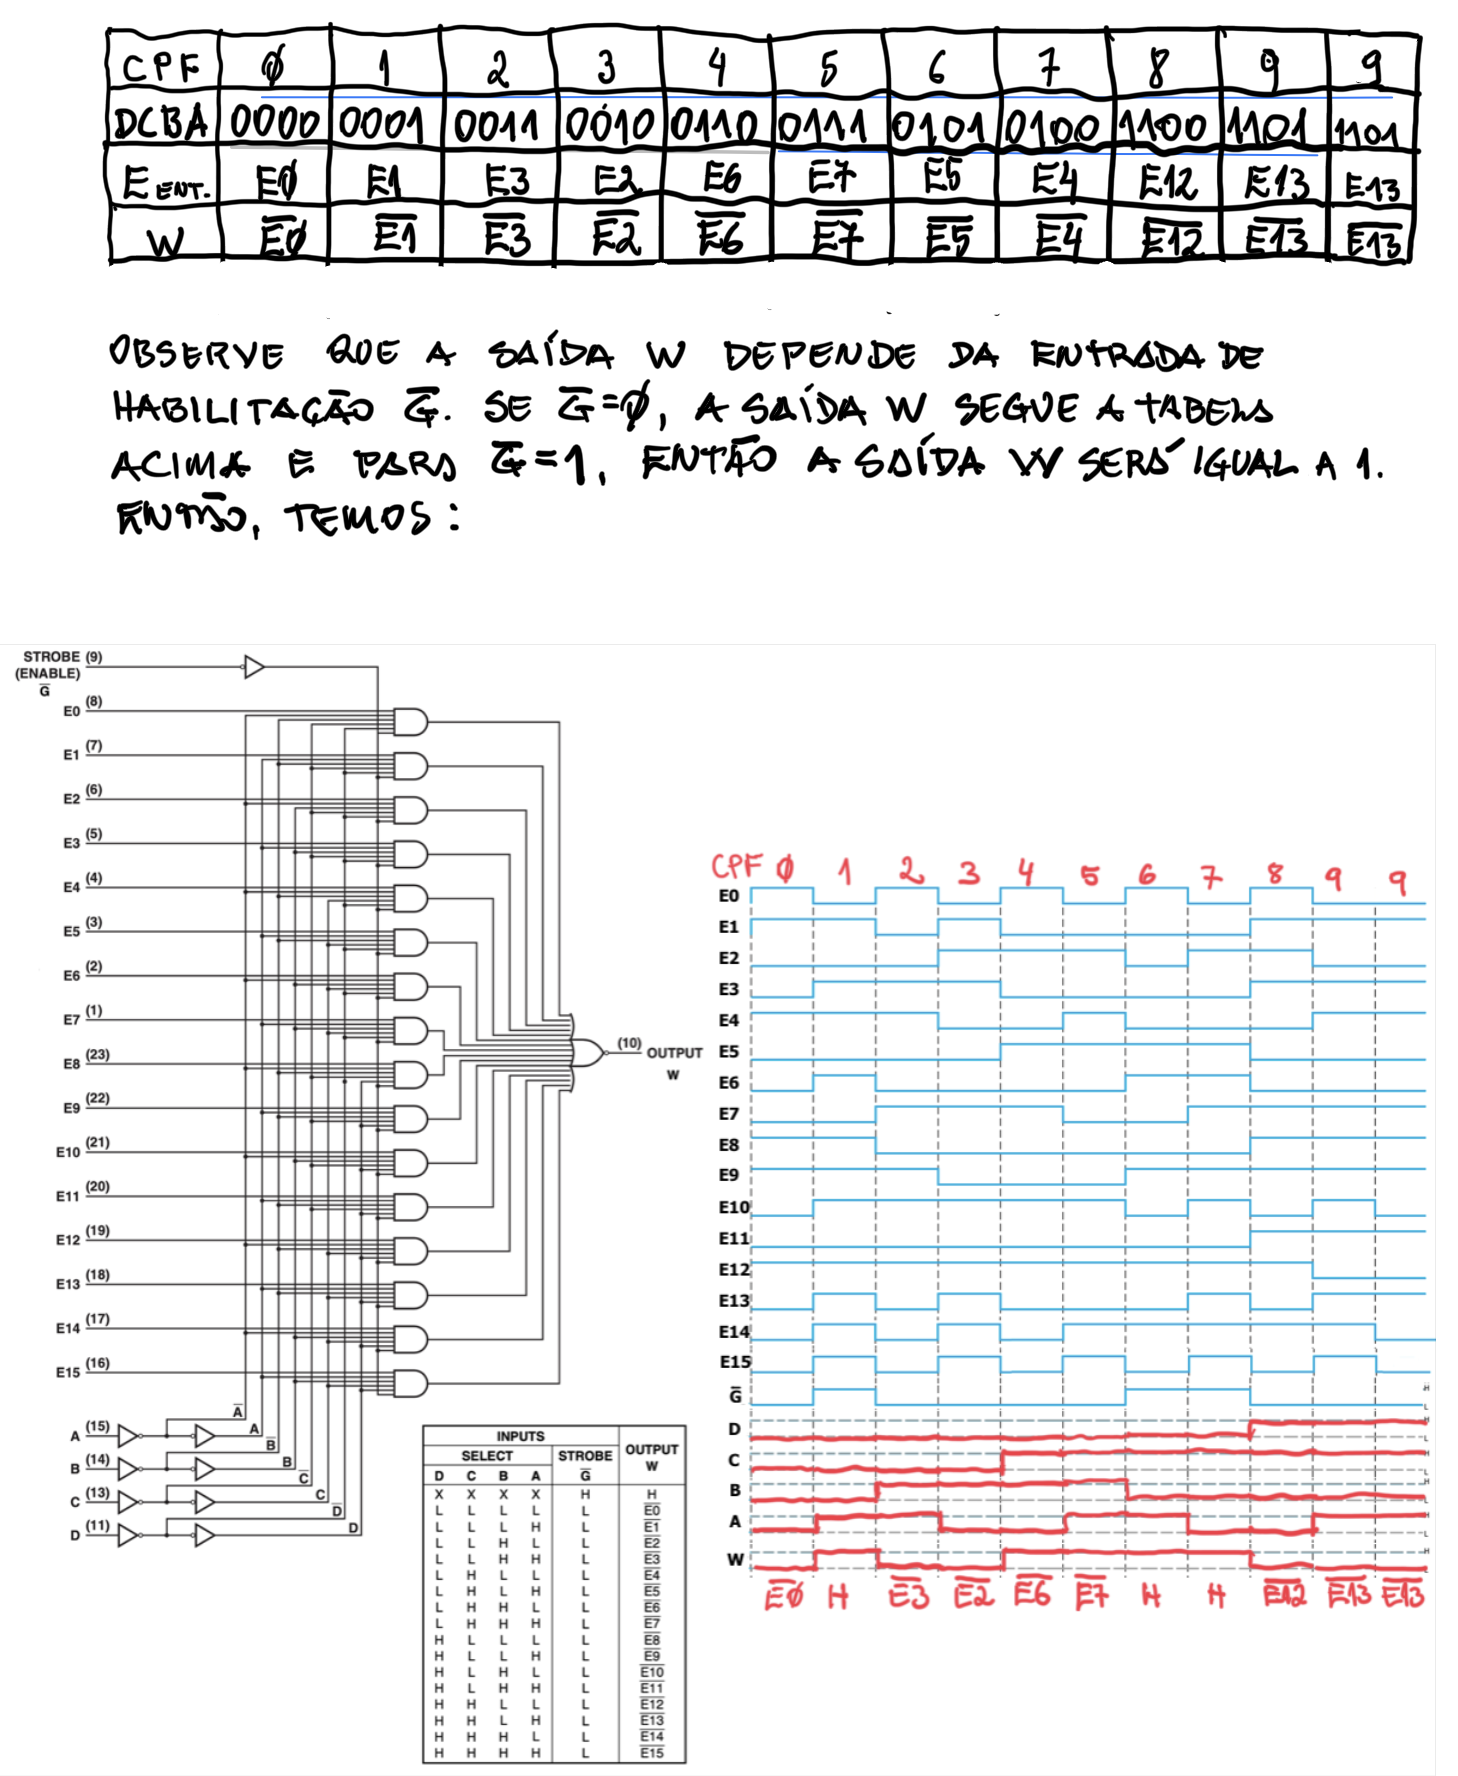 CPF 0 1 2 3 4 5 6 7 8 9 9
DCBA 0000 0001 0011 0010 0110 0111 0101 0100 1100 1101 1101
E ENT. E0 E1 E3 E2 E6 E7 E5 E4 E12 E13 E13
W E̅0̅ E̅1̅ E̅3̅ E̅2̅ E̅6̅ E̅7̅ E̅5̅ E̅4̅ E̅1̅2̅ E̅1̅3̅ E̅1̅3̅
OBSERVE QUE A SAÍDA W DEPENDE DA ENTRADA DE
HABILITAÇÃO G̅. SE G̅=0, A SAÍDA W SEGUE A TABELA
ACIMA E PARA G̅=1, ENTÃO A SAÍDA W SERÁ IGUAL A 1.
ENTÃO, TEMOS:
STROBE (9)
(ENABLE)
G̅
E0 (8)
E1 (7)
E2 (6)
E3 (5)
E4 (4)
E5 (3)
E6 (2)
E7 (1)
E8 (23)
E9 (22)
E10 (21)
E11 (20)
E12 (19)
E13 (18)
E14 (17)
E15 (16)
(10) OUTPUT
W
A (15) A̅ A
B (14) B̅ B
C (13) C̅ C
D (11) D̅ D
INPUTS OUTPUT
SELECT STROBE W
D C B A G̅
X X X X H H
L L L L L E̅0̅
L L L H L E̅1̅
L L H L L E̅2̅
L L H H L E̅3̅
L H L L L E̅4̅
L H L H L E̅5̅
L H H L L E̅6̅
L H H H L E̅7̅
H L L L L E̅8̅
H L L H L E̅9̅
H L H L L E̅1̅0̅
H L H H L E̅1̅1̅
H H L L L E̅1̅2̅
H H L H L E̅1̅3̅
H H H L L E̅1̅4̅
H H H H L E̅1̅5̅
CPF 0 1 2 3 4 5 6 7 8 9 9
E0
E1
E2
E3
E4
E5
E6
E7
E8
E9
E10
E11
E12
E13
E14
E15
G̅ H L
D H L
C H L
B H L
A H L
W H L
E̅0̅ H E̅3̅ E̅2̅ E̅6̅ E̅7̅ H H E̅1̅2̅ E̅1̅3̅ E̅1̅3̅